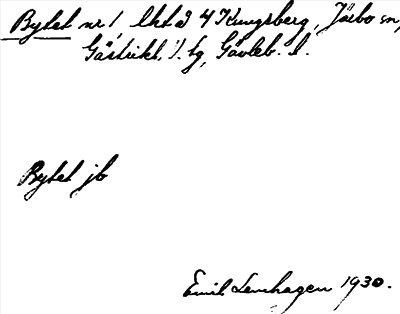 Bytet nr 1, lht å 4 Kungsberg, Järbo sn,
Gästrikl. ö. tg, Gävleb. l.
Bytet jb
Emil Lenhagen 1930.